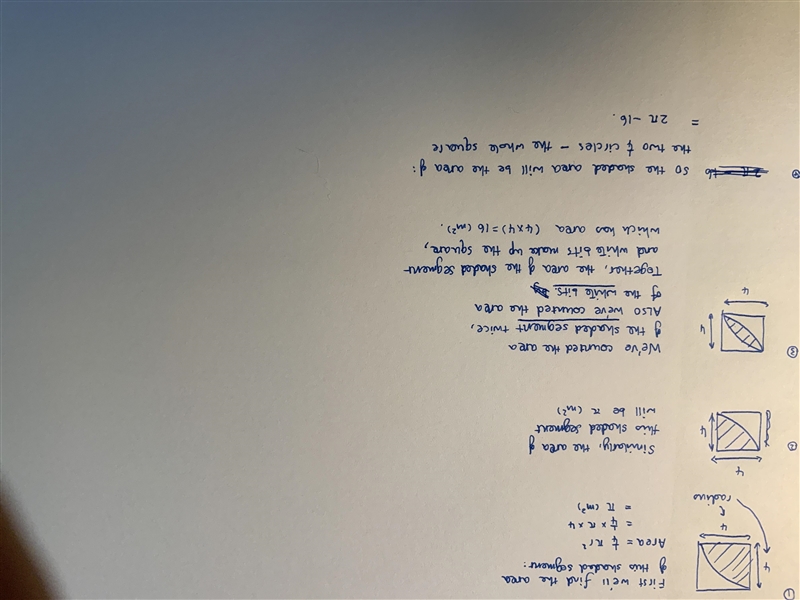 ①
4
4
radius
First we'll find the area
of this shaded segment:
Area = ¼ πr²
= ¼ × π × 4
= π (m²)
②
4
4
Similarly, the area of
this shaded segment
will be π (m²)
③
4
4
We've counted the area
of the shaded segment twice,
Also we've counted the area
of the white bits.
Together, the area of the shaded segment
and white bits make up the square,
which has area (4×4) = 16 (m²).
④
so the shaded area will be the area of:
the two ¼ circles - the whole square
= 2π - 16.